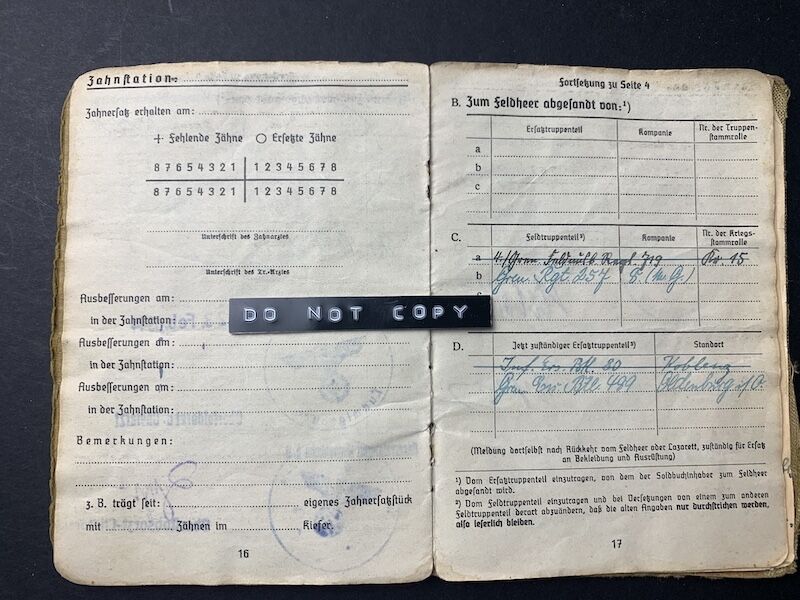 Zahnstation:
Zahnersatz erhalten am:
+ Fehlende Zähne ○ Ersetzte Zähne
8 7 6 5 4 3 2 1 | 1 2 3 4 5 6 7 8
8 7 6 5 4 3 2 1 | 1 2 3 4 5 6 7 8
Unterschrift des Zahnarztes
Unterschrift des Tr.-Arztes
Ausbesserungen am:
in der Zahnstation:
Ausbesserungen am:
in der Zahnstation:
Ausbesserungen am:
in der Zahnstation:
Bemerkungen:
z. B. trägt seit: eigenes Zahnersatzstück
mit Zähnen im Kiefer.
16
DO NOT COPY
Fortsetzung zu Seite 4
B. Zum Feldheer abgesandt von:¹)
Ersatztruppenteil Kompanie Nr. der Truppen-
stammrolle
a
b
c
C. Feldtruppenteil²) Kompanie Nr. der Kriegs-
stammrolle
a 4./Gren. Regt. 719 15
b Gren. Rgt. 257 8. (M.G.)
D. Jetzt zuständiger Ersatztruppenteil³) Standort
Inf. Ers. Btl. 80 Koblenz
Gren. Ers. Btl. 489
(Meldung dortselbst nach Rückkehr vom Feldheer oder Lazarett, zuständig für Ersatz
an Bekleidung und Ausrüstung)
¹) Vom Ersatztruppenteil einzutragen, von dem der Soldbuchinhaber zum Feldheer
abgesandt wird.
²) Vom Feldtruppenteil einzutragen und bei Versetzungen von einem zum anderen
Feldtruppenteil derart abzuändern, daß die alten Angaben nur durchstrichen werden,
also leserlich bleiben.
17